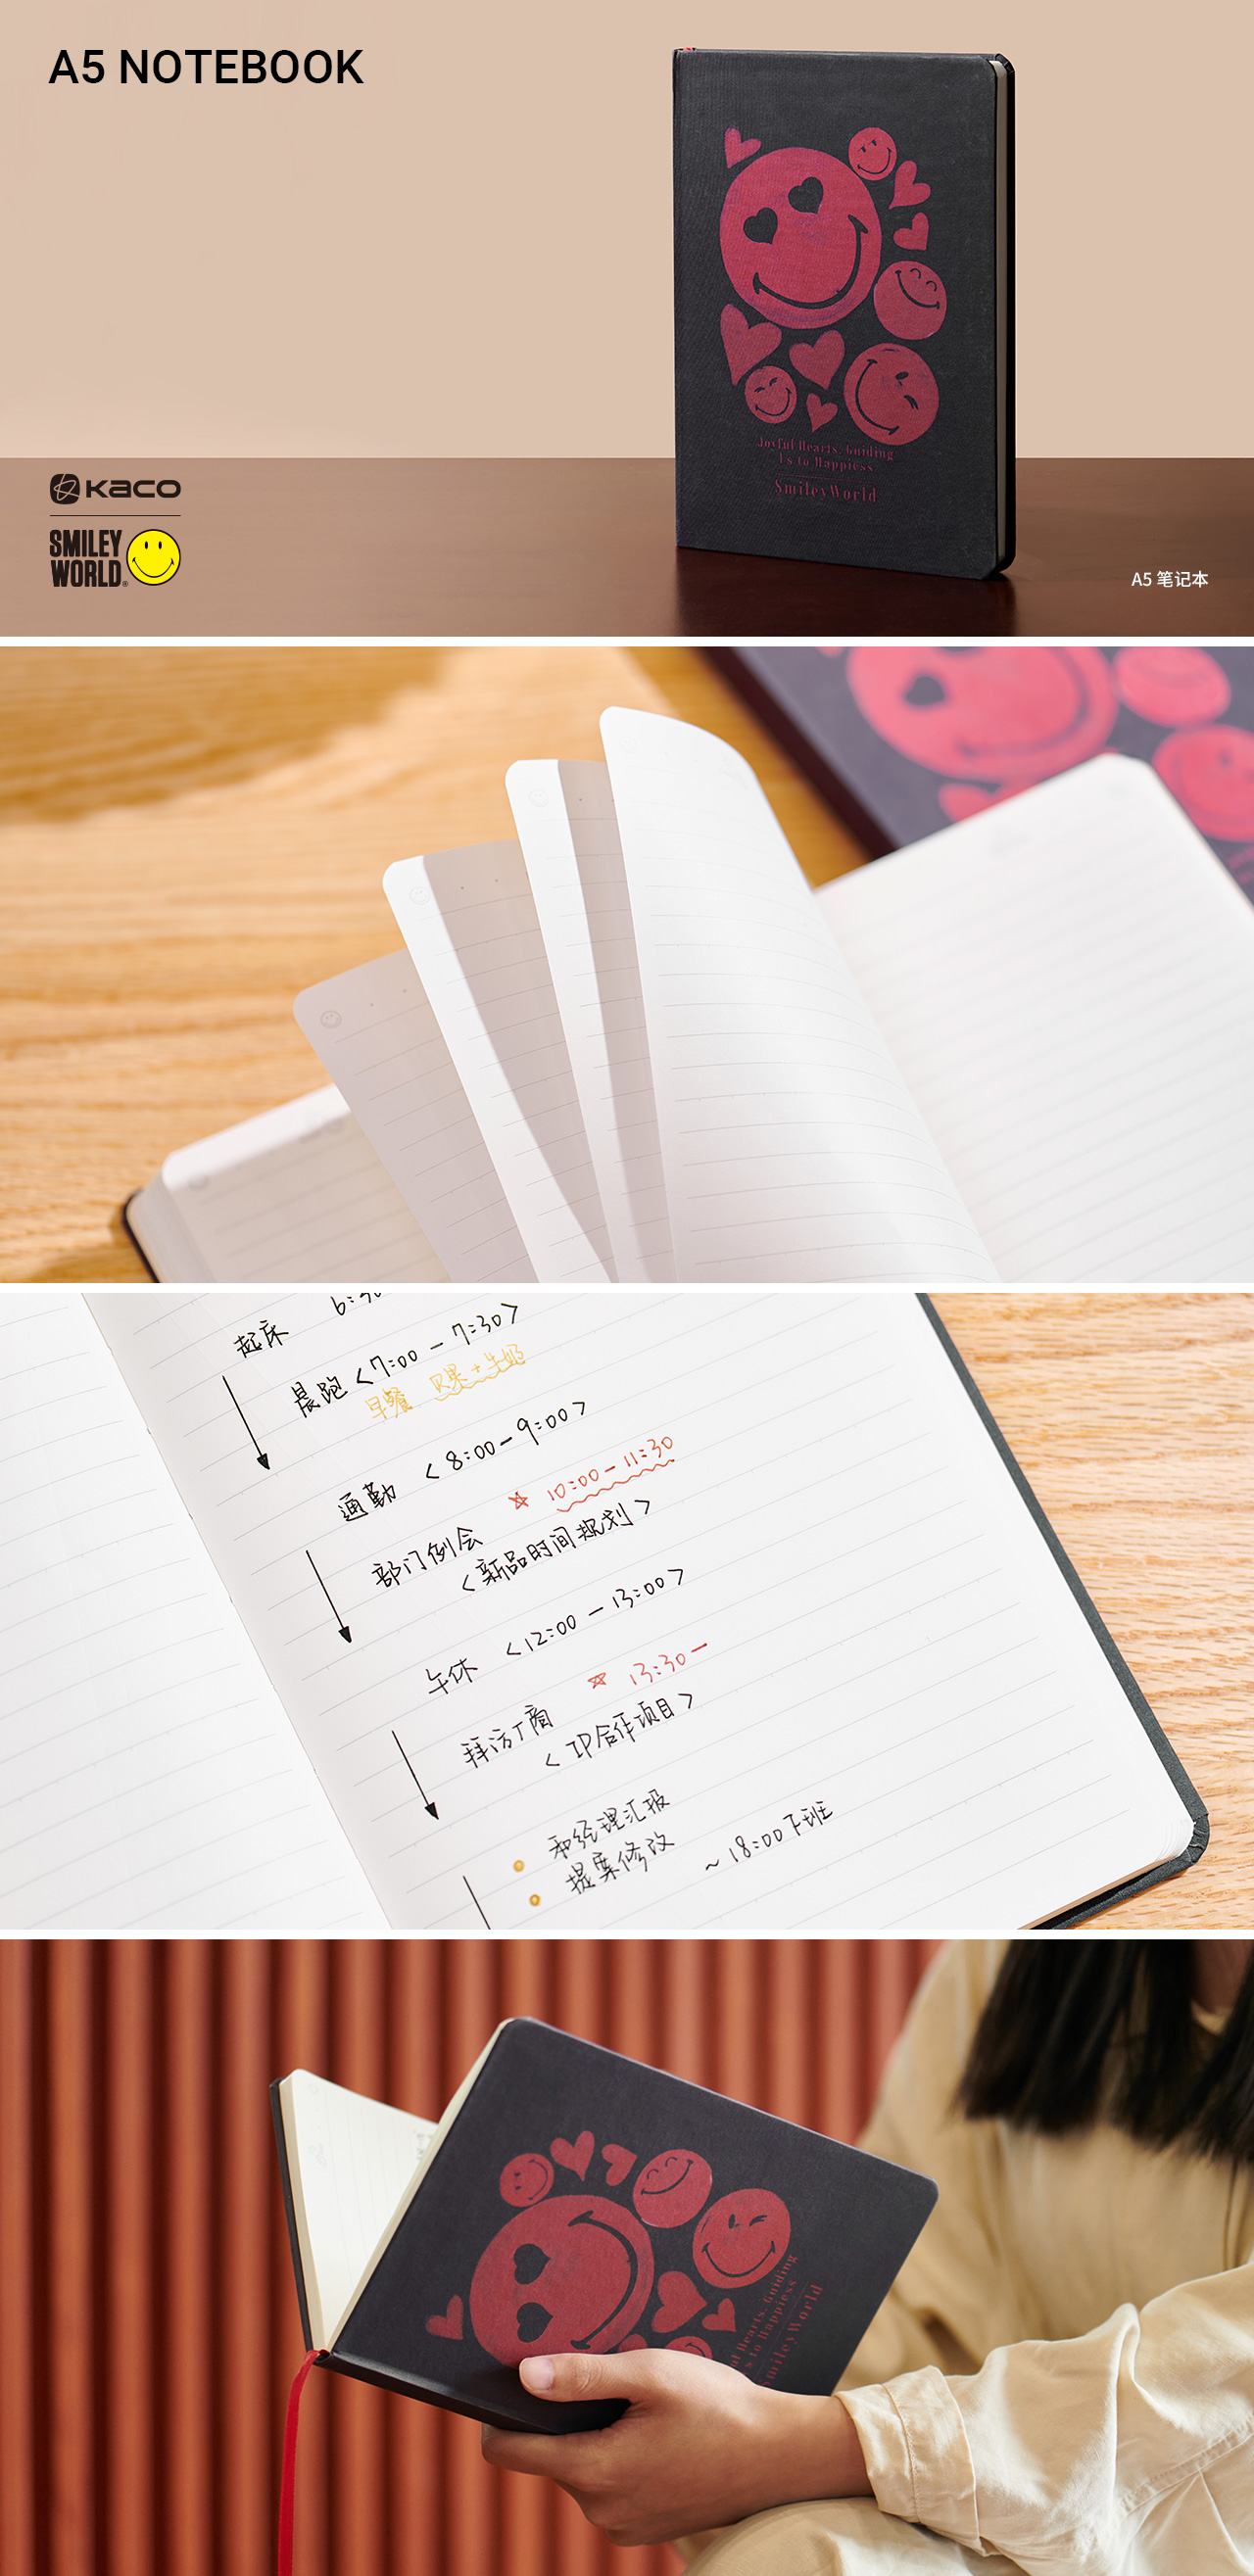 A5 NOTEBOOK
Joyful Hearts, Guiding
Us to Happiess
SmileyWorld
KACO
SMILEY
WORLD®
A5 笔记本
起床
晨跑 <7:00 — 7:30>
早餐 贝果 + 牛奶
通勤 <8:00 — 9:00>
部门例会 ☆ 10:00 — 11:30
<新品时间规划>
午休 <12:00 — 13:00>
拜访厂商 ☆ 13:30 —
<IP合作项目>
和经理汇报
提案修改 ~ 18:00 下班
Hearts, Guiding
to Happiess
SmileyWorld